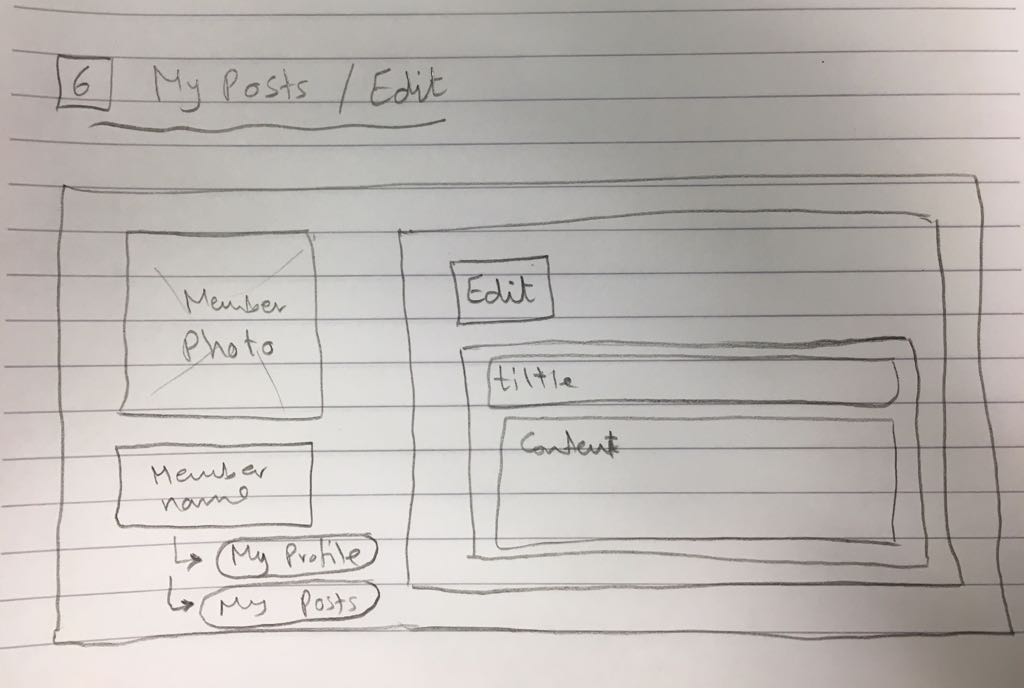 6 My Posts / Edit
Member
Photo
Member
name
My Profile
My Posts
Edit
tiltle
Content